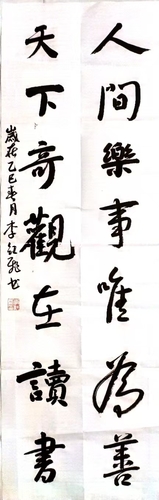 人間樂事唯為善
天下奇觀在讀書
歲在乙巳春月李紅飛书